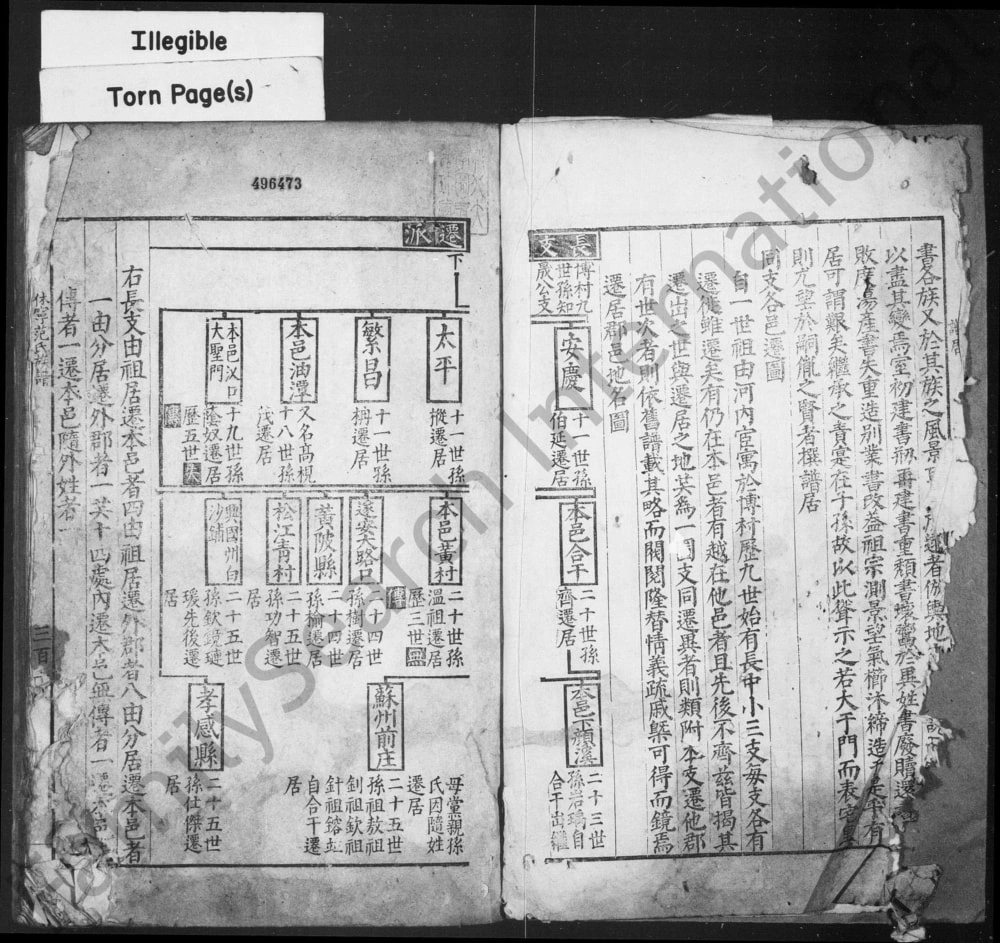 Illegible
Torn Page(s)
496473
書各族又於其族之風景
遷者倣輿地
以盡其變焉室初建書刱再建書重頹書壞鬻於異姓書廢贖還書
敗廢蕩產書失重造別業書改葢祖宗測景望氣櫛沐締造
居可謂艱矣繼承之責寔在子孫故以此聳示之若大干門而表宅里
則尤望於嗣胤之賢者撰譜居
同支各邑遷圖
自一世祖由河內宦寓於博村歷九世始有長中小三支每支各有
遷徙雖遷矣有仍在本邑者有越在他邑者且先後不齊兹皆揭其
遷出之世與遷居之地共為一圖支同遷異者則類附本支遷他郡
有世次者則依舊譜載其略而閥閱隆替情義疏戚槩可得而鏡焉
遷居郡邑地名圖
長支
博村九
世孫知
晟公支
安慶
十一世孫
伯延遷居
本邑合干
二十世孫
齊遷居
本邑下顏溪
二十三世
孫岩瑀自
合干出繼
遷派
下
太平
十一世孫
樅遷居
繁昌
十一世孫
栴遷居
本邑油潭
又名高梘
十八世孫
茂遷居
本邑汊口
大聖門
十九世孫
蔭奴遷居
歷五世失
傳
本邑黃村
二十世孫
溫祖遷居
歷三世無
傳
遂安大路口
二十四世
孫樹遷居
黃陂縣
二十四世
孫楡遷居
松江青村
二十五世
孫功智遷
居
興國州白
沙鋪
二十五世
孫欽鏡璉
瑗先後遷
居
蘇州前庄
母黨親孫
氏因隨姓
遷居
二十五世
孫祖敖祖
釗祖欽祖
針祖鎔並
自合干遷
居
孝感縣
二十五世
孫仕傑遷
居
右長支由祖居遷本邑者四由祖居遷外郡者八由分居遷本邑者
一由分居遷外郡者一共十四處內遷本邑無傳者一遷本邑
傳者一遷本邑隨外姓者
休寧范氏族譜